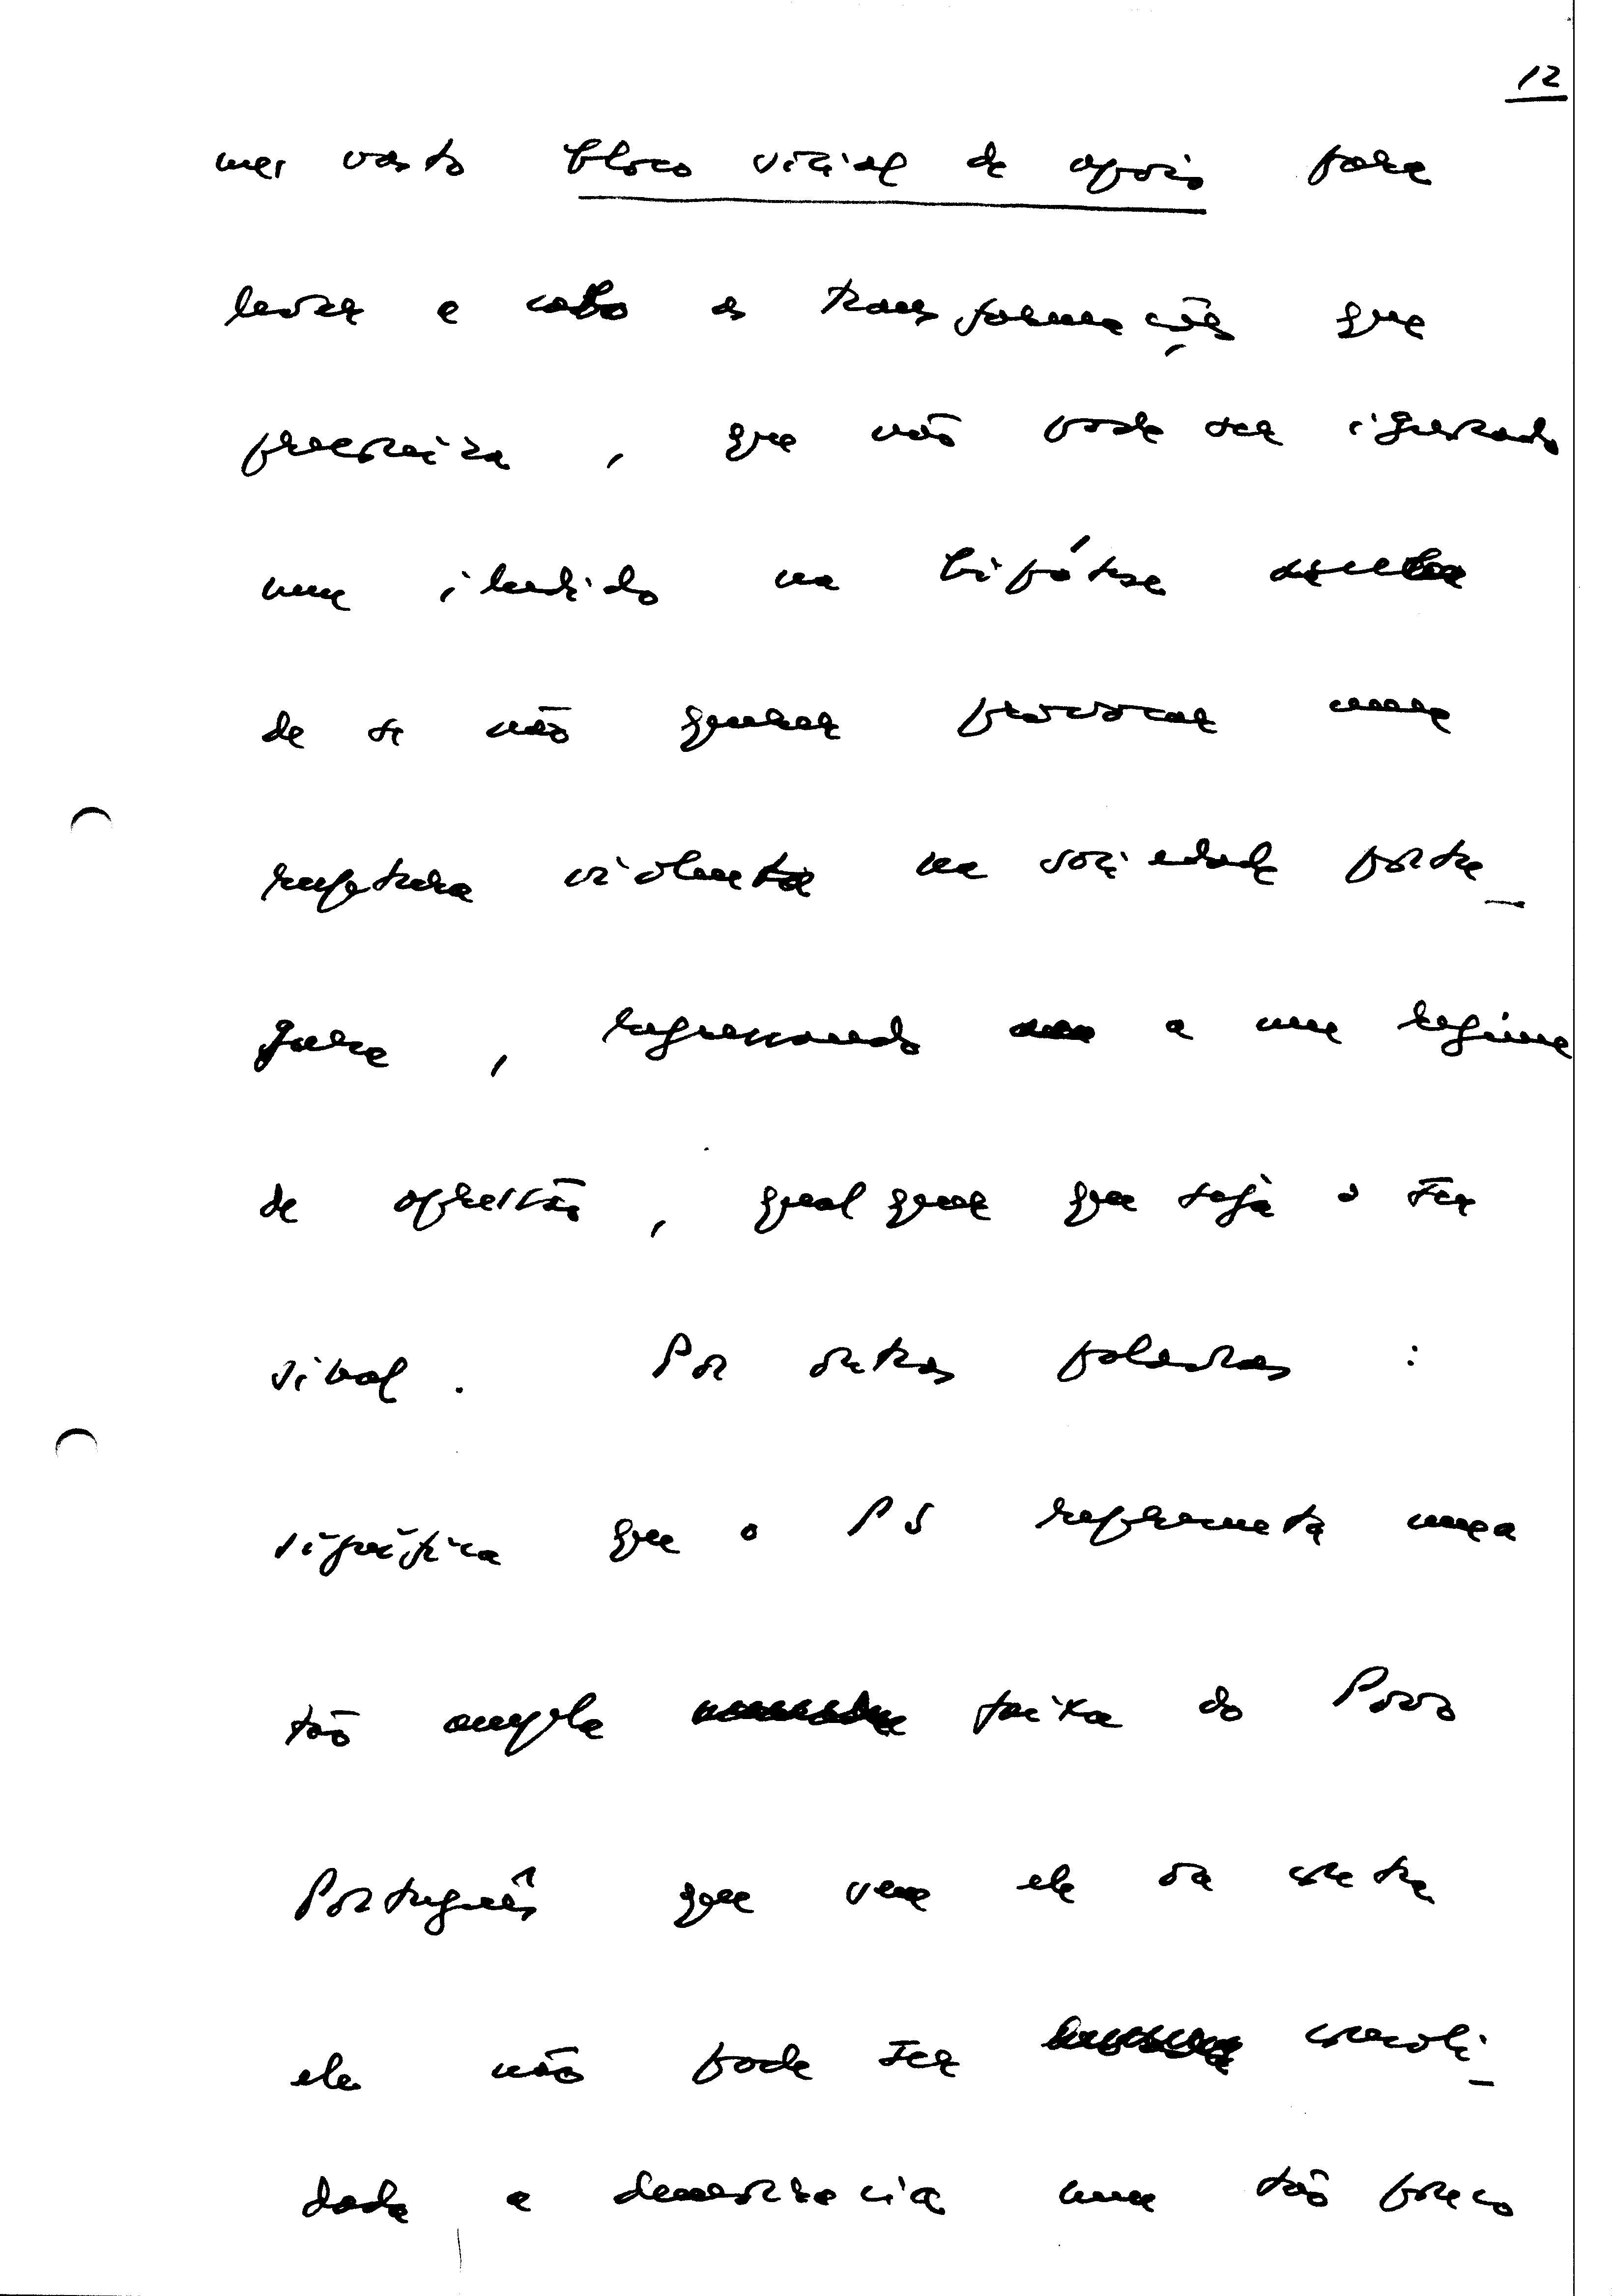 12
um vasto bloco social de apoio para
levar a cabo as transformações que
preconiza, que não pode ser ignorado
nem iludido na hipótese
de se não querer provocar uma
ruptura violenta na sociedade portu-
guesa, regressando a um regime
de opressão, qual quer que seja o seu
sinal. Por outras palavras:
significa que o PS representa uma
tão ampla faixa do Povo
Português que sem ele ou contra
ele não pode ser consoli-
dada a democracia nem tão pouco